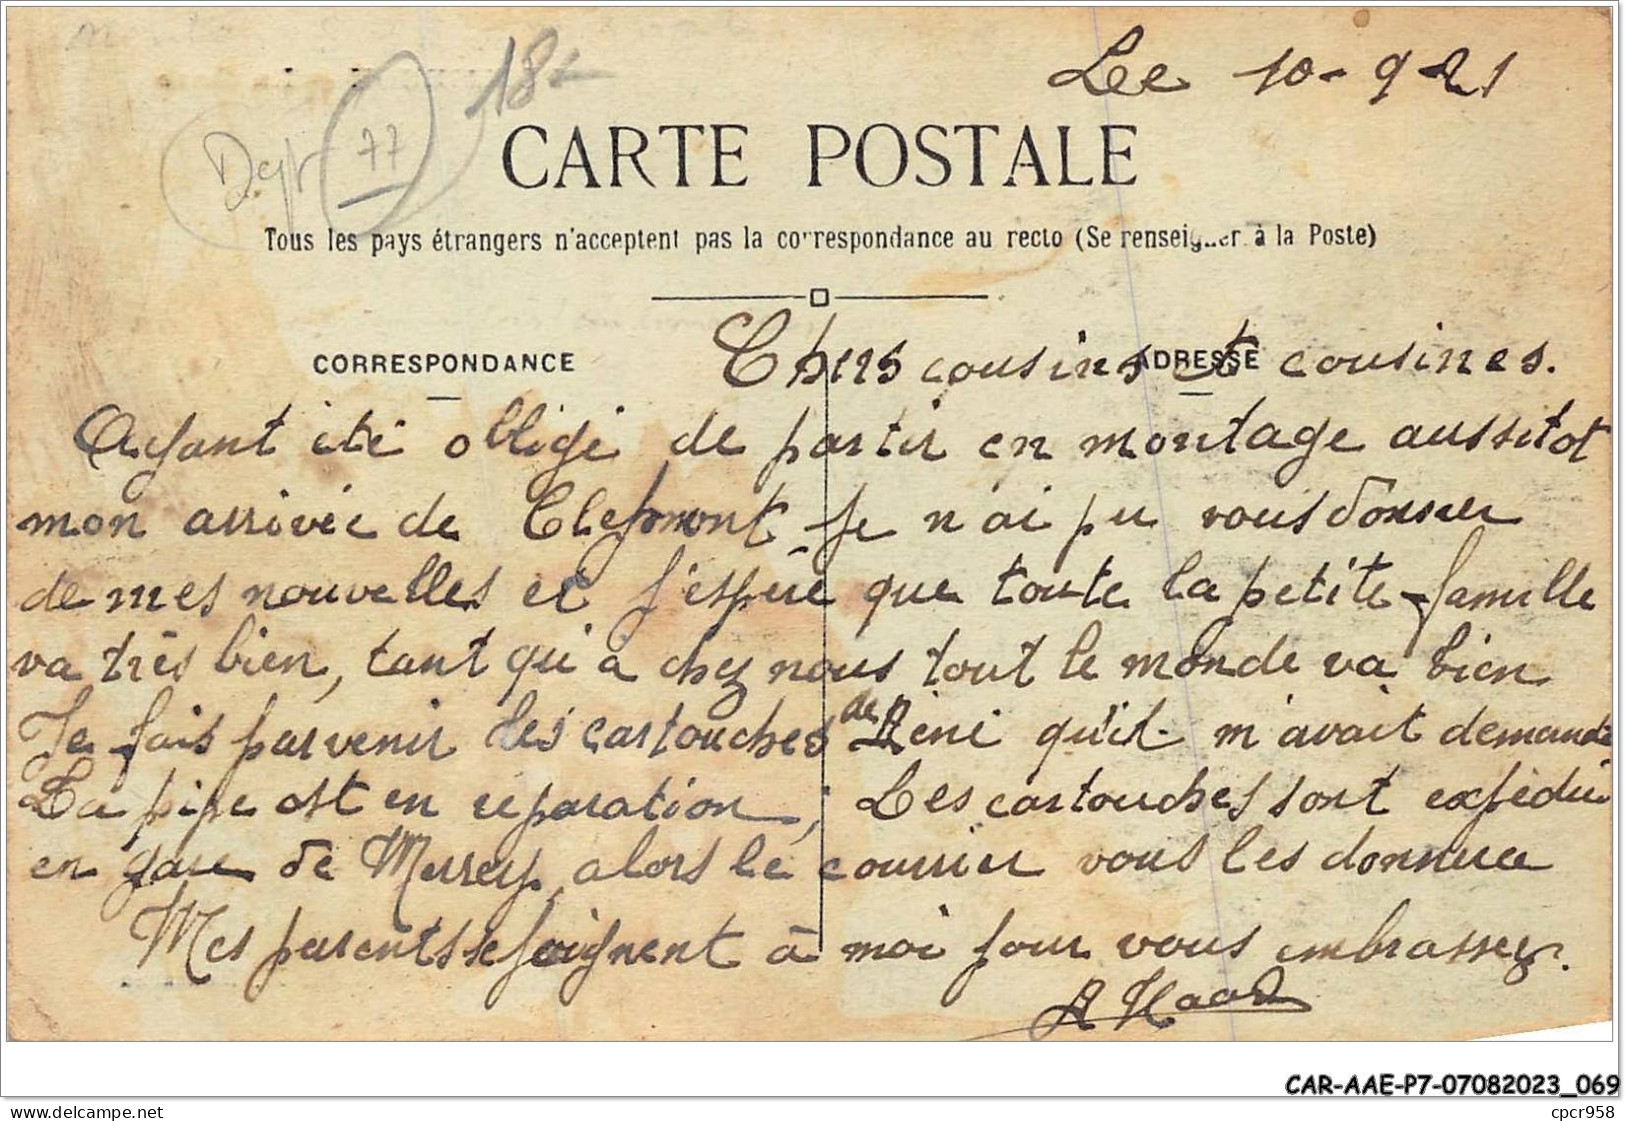 Le 10-9-21
Dept 77 18-
CARTE POSTALE
Tous les pays étrangers n'acceptent pas la correspondance au recto (Se renseigner à la Poste)
CORRESPONDANCE
ADRESSE
Chers cousins et cousines.
Ayant été obligé de partir en montage aussitot
mon arrivée de Clefmont Je n'ai pu vous donner
de mes nouvelles et j'espère que toute la petite famille
va très bien, tant qu'à chez nous tout le monde va bien
Je fais parvenir les cartouches de Réné qu'il m'avait demandé
La pipe est en reparation, Les cartouches sont expédié
en gare de Merrey, alors le courrier vous les donnera
Mes parents se joignent à moi pour vous embrasser.
CAR-AAE-P7-07082023_069
www.delcampe.net
cpcr958